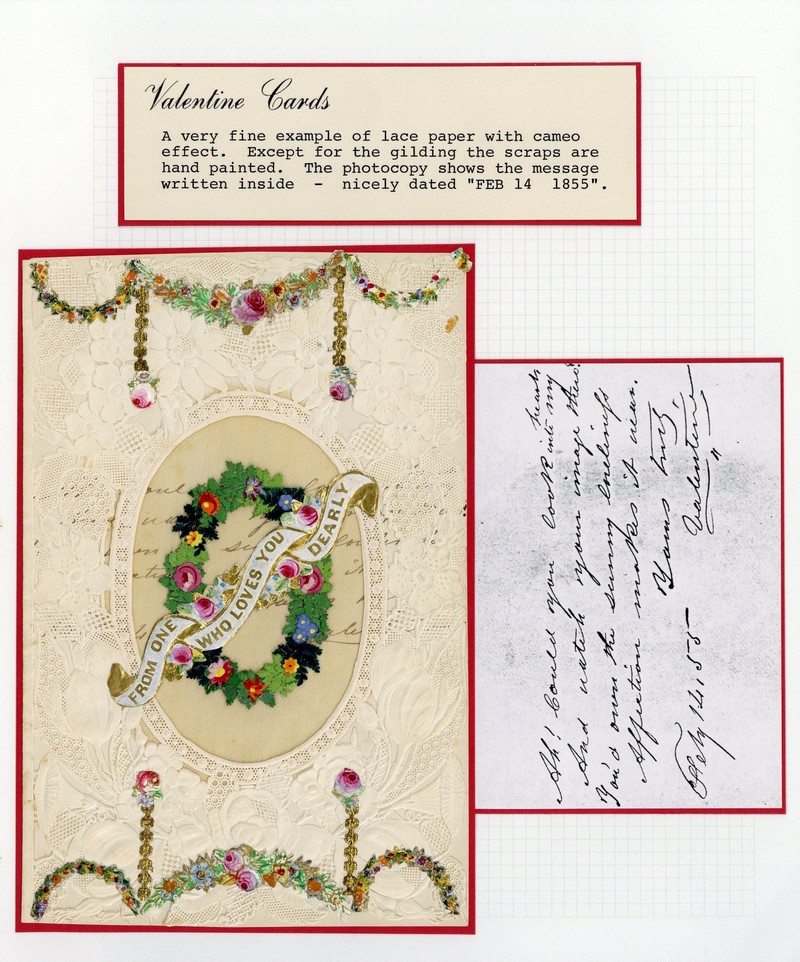 Valentine Cards
A very fine example of lace paper with cameo
effect. Except for the gilding the scraps are
hand painted. The photocopy shows the message
written inside - nicely dated "FEB 14 1855".
FROM ONE
WHO LOVES YOU
DEARLY
Ah! Could you look into my heart
And watch your image there!
You'd own the sunny
Affection makes it wear.
Yours truly
Valentine"
Feby 14 55